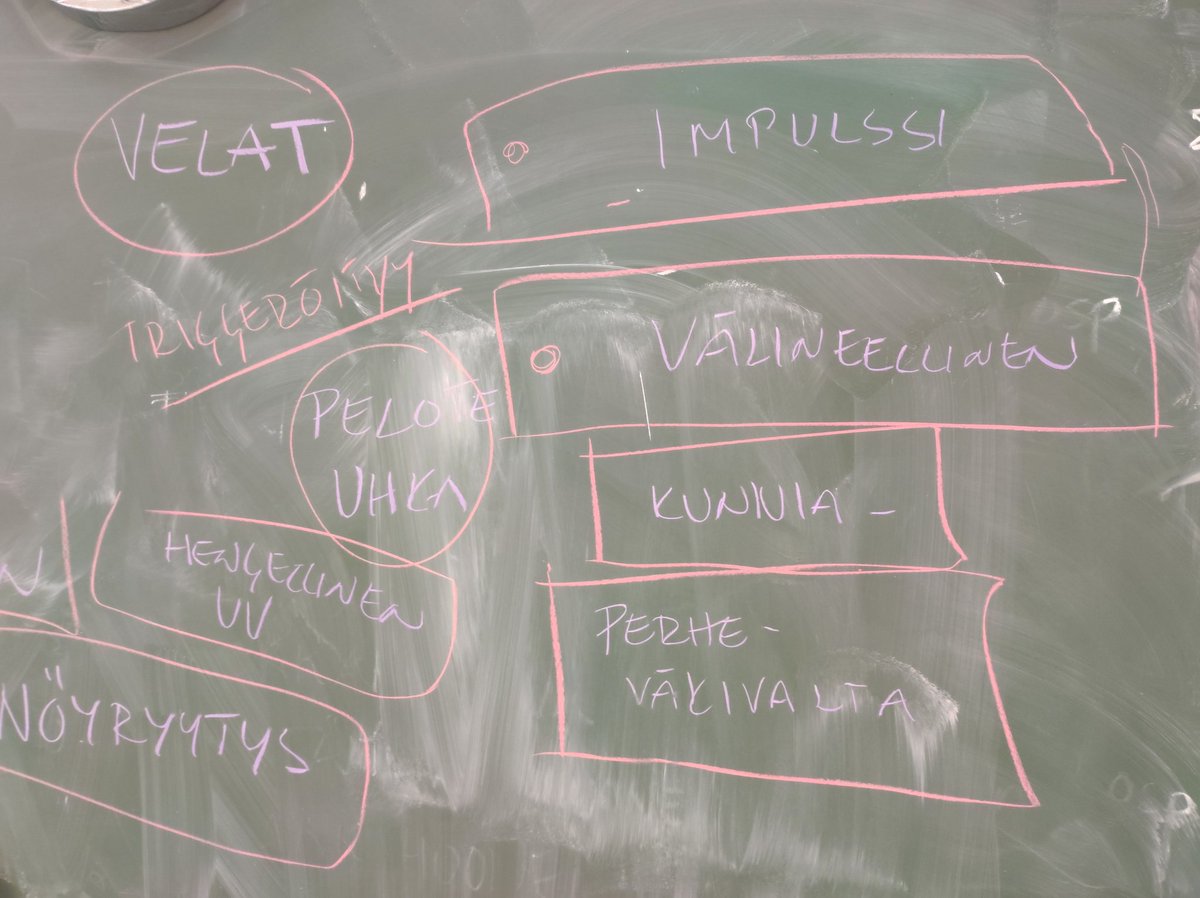 VELAT
IMPULSSI
TRIGGERÖINYY
VÄLINEELLINEN
PELOTE
UHKA
KUNNIA-
HENGELLINEN
VV
PERHE-
VÄKIVALTA
NÖYRYYTYS